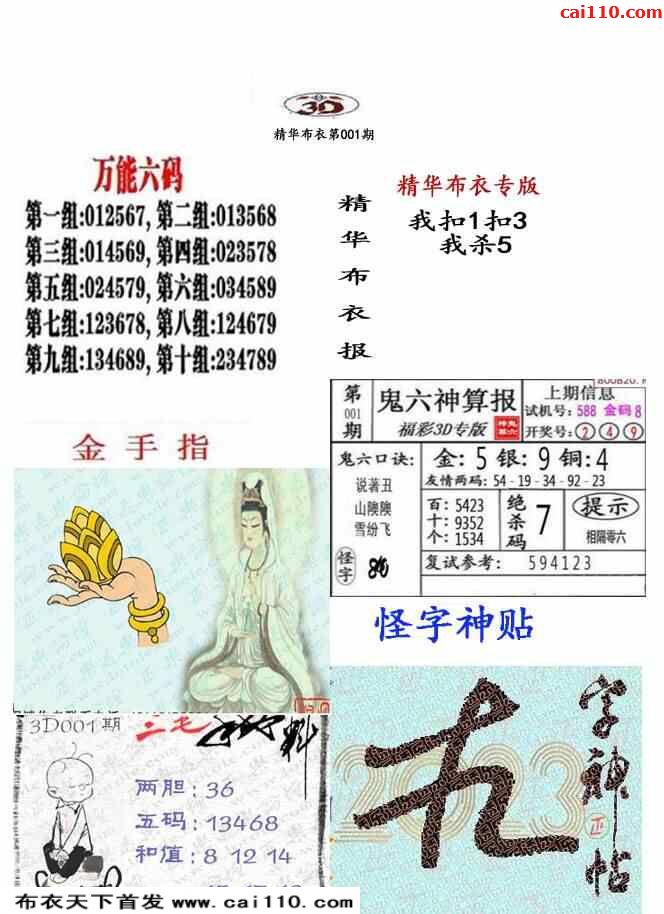 cai110.com
3D
精华布衣第001期
万能六码
第一组:012567, 第二组:013568
第三组:014569, 第四组:023578
第五组:024579, 第六组:034589
第七组:123678, 第八组:124679
第九组:134689, 第十组:234789
精华布衣报
精华布衣专版
我扣1扣3
我杀5
金手指
第001期
鬼六神算报
福彩3D专版
上期信息
试机号: 588 金码 8
开奖号: 2 4 9
鬼六口诀:
说著丑
山隩隩
雪纷飞
怪字
金: 5 银: 9 铜: 4
友情两码: 54-19-34-92-23
百: 5423
十: 9352
个: 1534
绝杀码
7
提示
相隔零六
复试参考: 594123
怪字神贴
3D001期
二毛
两胆: 36
五码: 13468
和值: 8 12 14
2023
字神帖
布衣天下首发 www.cai110.com